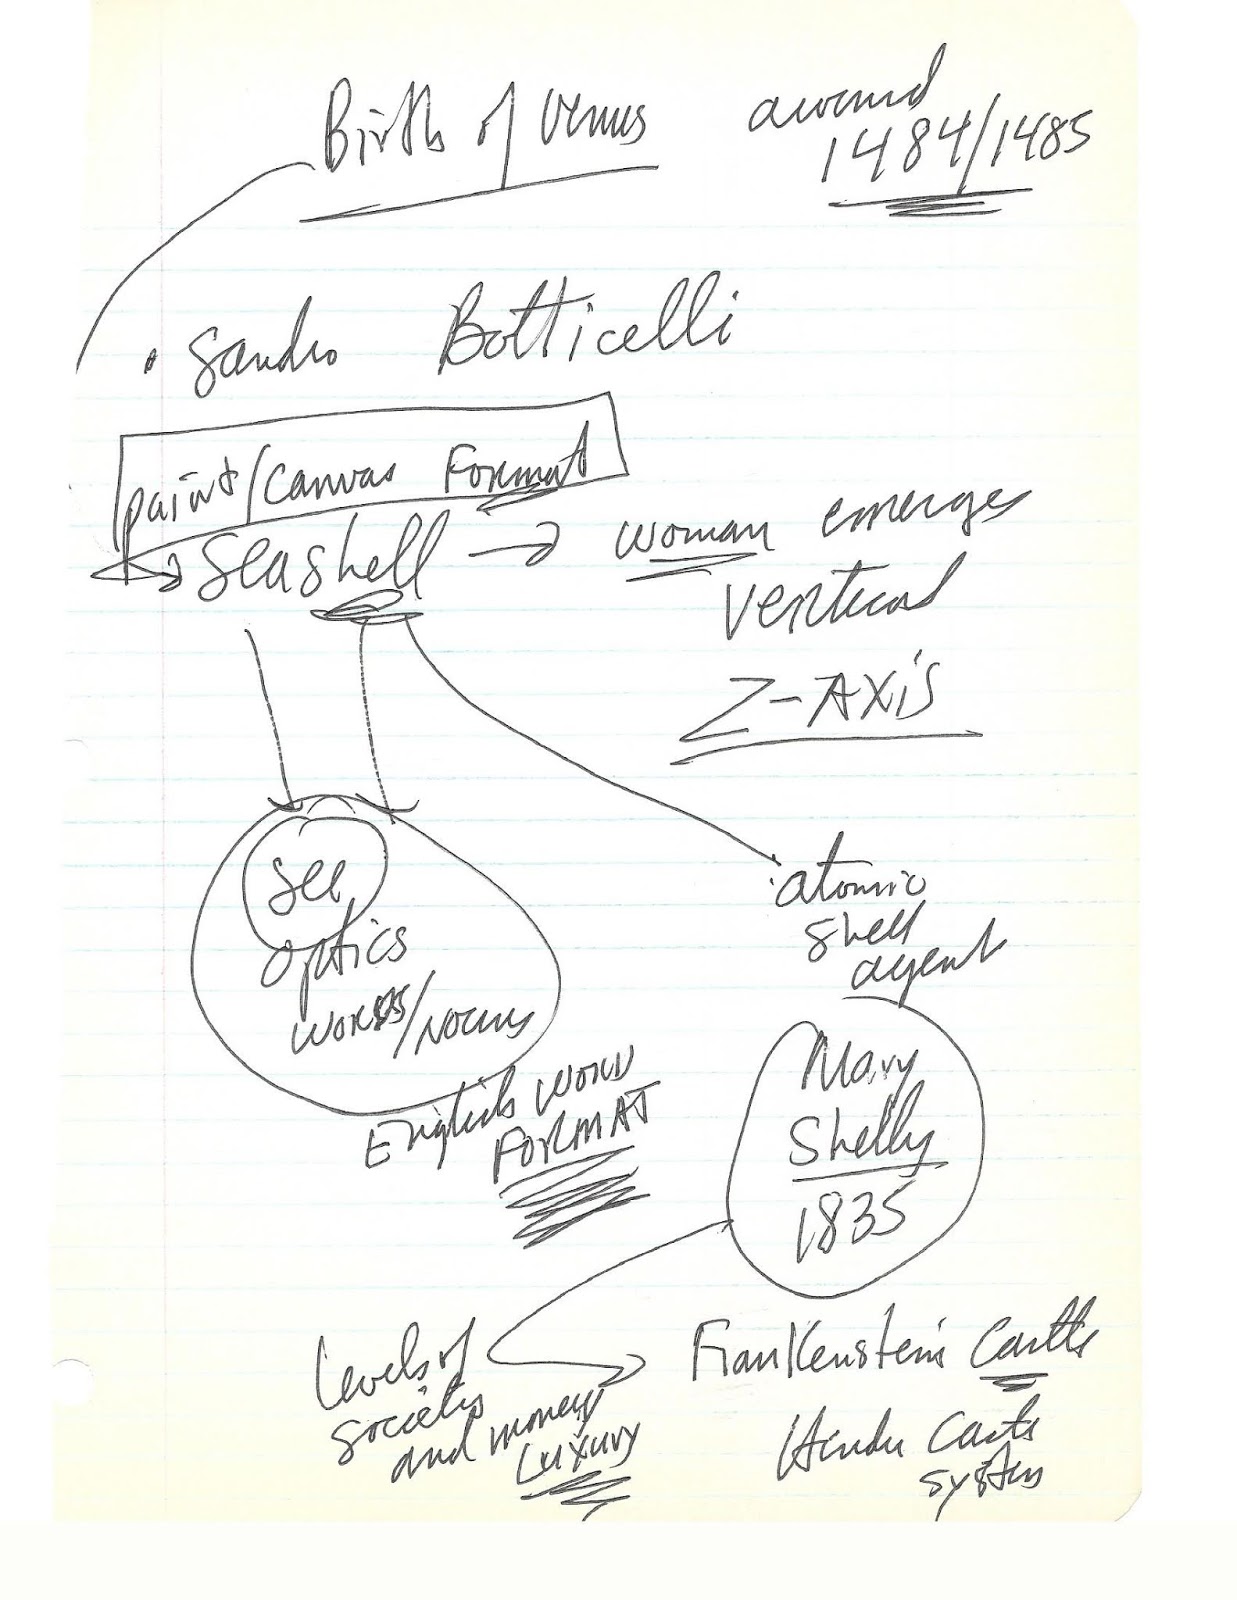 Birth of Venus
around
1484/1485
• Sandro Botticelli
paint/canvas Format
Seashell → woman emerges
vertical
Z-AXiS
See
optics
words/nouns
English word
FORMAT
atomic
shell
agent
Mary
Shelly
1835
Levels of
society
and money
Luxury
Frankenstein's Castle
Hindu Caste
system